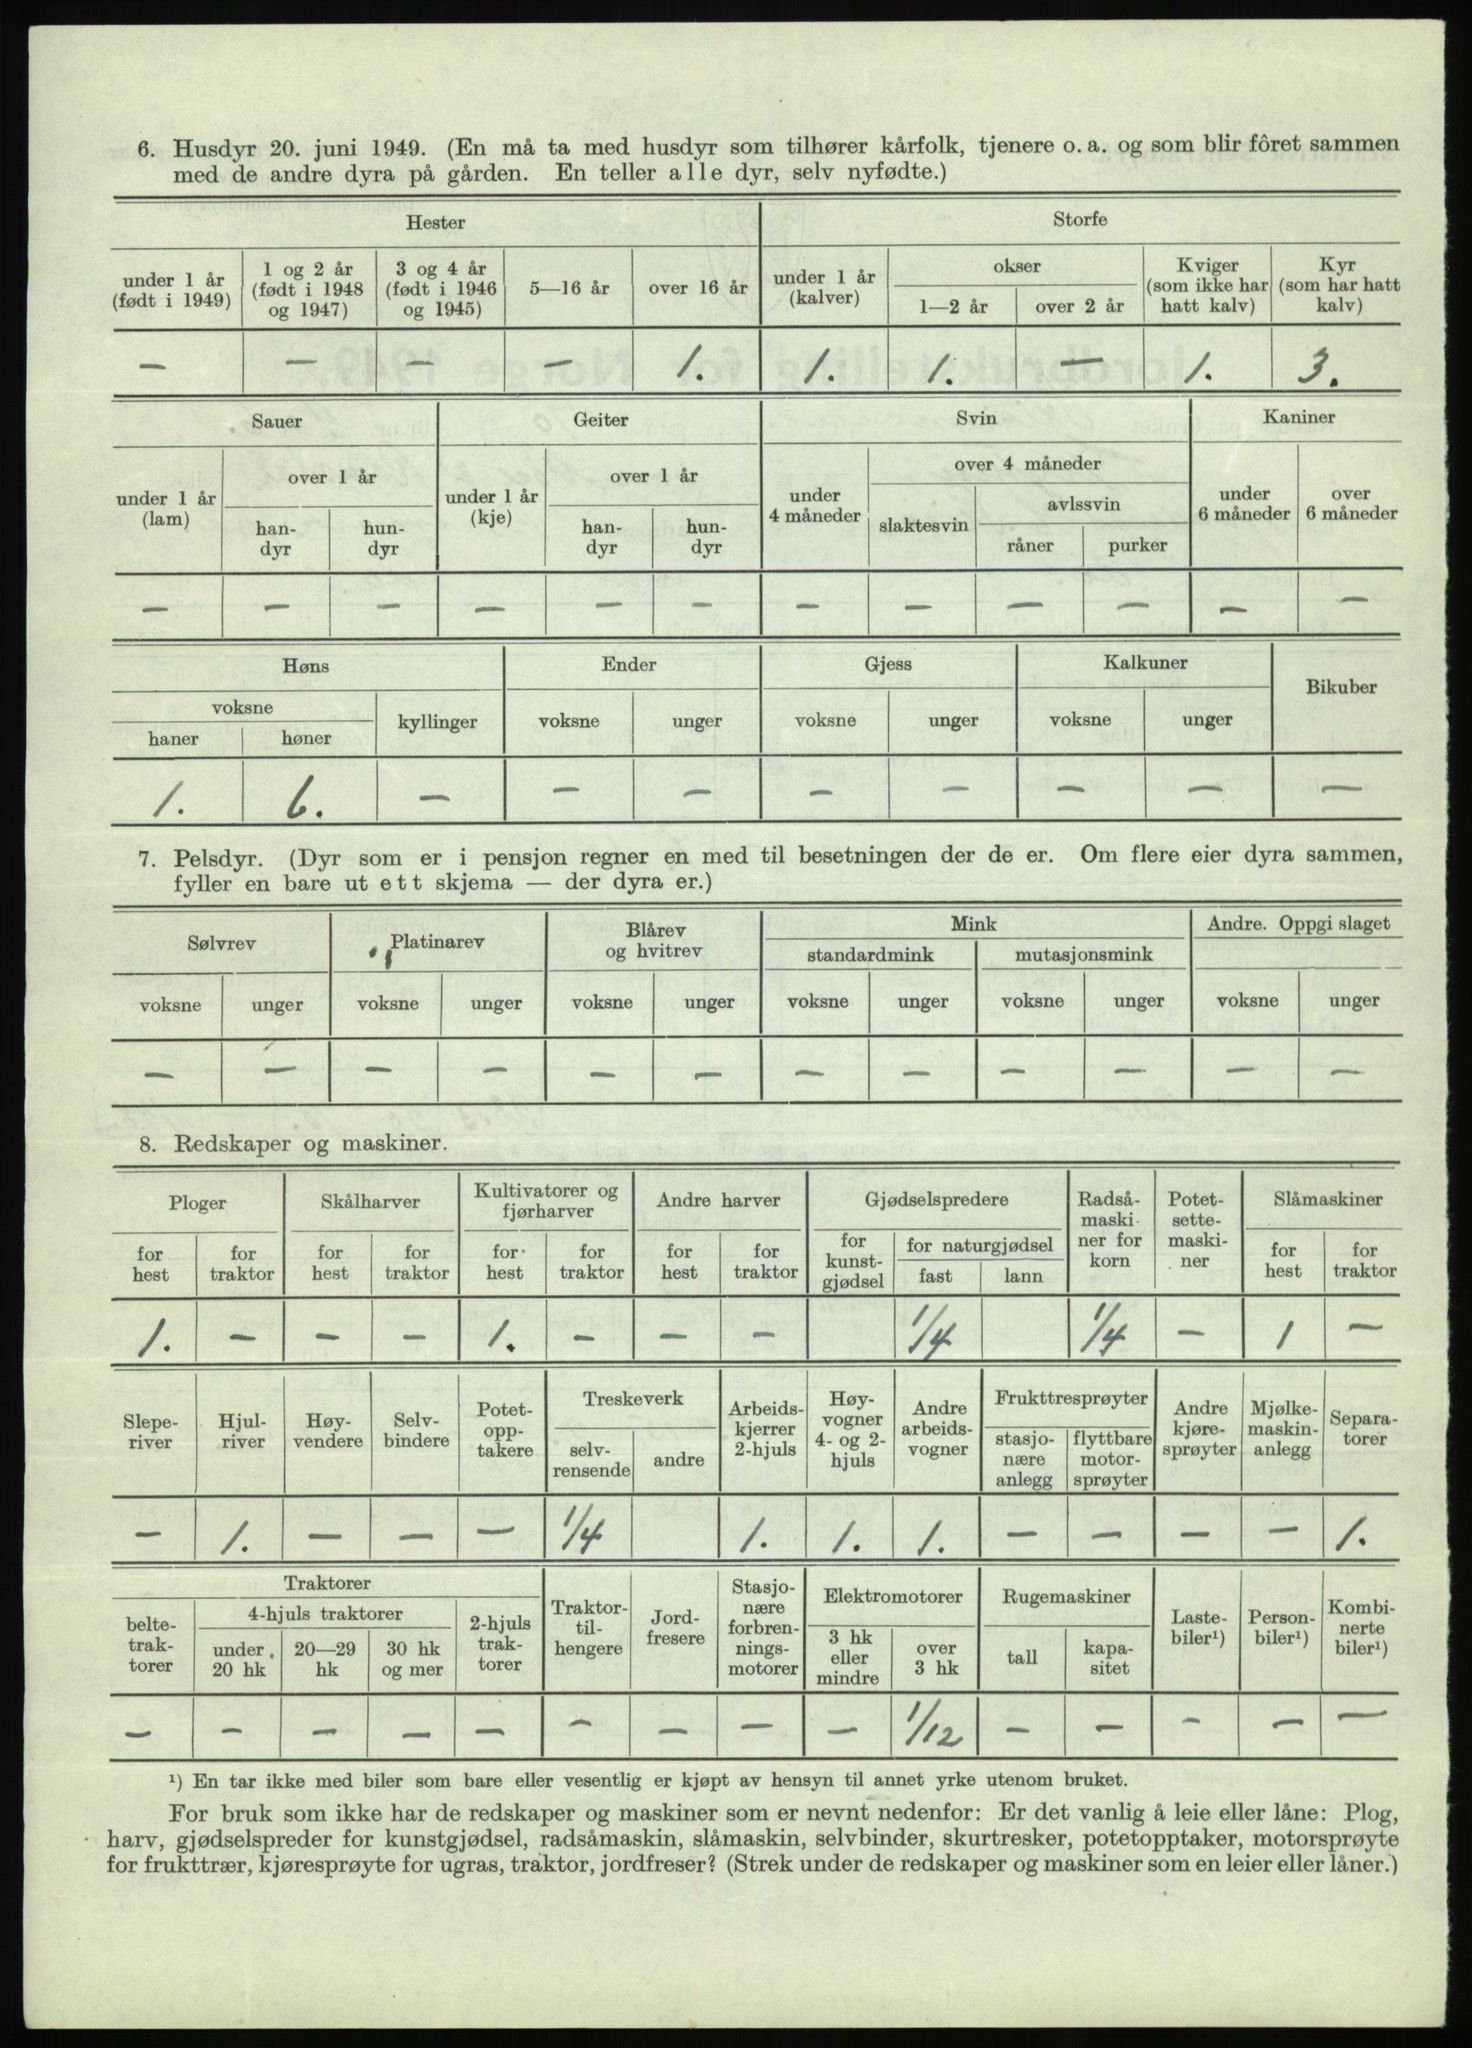 6. Husdyr 20. juni 1949. (En må ta med husdyr som tilhører kårfolk, tjenere o. a. og som blir fôret sammen
med de andre dyra på gården. En teller alle dyr, selv nyfødte.)
Hester Storfe
under 1 år (født i 1949) 1 og 2 år (født i 1948 og 1947) 3 og 4 år (født i 1946 og 1945) 5—16 år over 16 år under 1 år (kalver) okser 1—2 år over 2 år Kviger (som ikke har hatt kalv) Kyr (som har hatt kalv)
— — — — 1. 1. 1. — 1. 3.
Sauer Geiter Svin Kaniner
under 1 år (lam) over 1 år handyr hundyr under 1 år (kje) over 1 år handyr hundyr under 4 måneder over 4 måneder slaktesvin avlssvin råner purker under 6 måneder over 6 måneder
— — — — — — — — — — — —
Høns Ender Gjess Kalkuner Bikuber
voksne haner høner kyllinger voksne unger voksne unger voksne unger
1. 6. — — — — — — — —
7. Pelsdyr. (Dyr som er i pensjon regner en med til besetningen der de er. Om flere eier dyra sammen,
fyller en bare ut ett skjema — der dyra er.)
Sølvrev Platinarev Blårev og hvitrev Mink Andre. Oppgi slaget
standardmink mutasjonsmink
voksne unger voksne unger voksne unger voksne unger voksne unger voksne unger
— — — — — — — — — — — —
8. Redskaper og maskiner.
Ploger Skålharver Kultivatorer og fjørharver Andre harver Gjødselspredere Radså-maski-ner for korn Potet-sette-maski-ner Slåmaskiner
for hest for traktor for hest for traktor for hest for traktor for hest for traktor for kunst-gjødsel for naturgjødsel fast lann for hest for traktor
1. — — — 1. — — — 1/4 1/4 — 1 —
Slepe-river Hjul-river Høy-vendere Selv-bindere Potet-opp-takere Treskeverk selv-rensende andre Arbeids-kjerrer 2-hjuls Høy-vogner 4- og 2-hjuls Andre arbeids-vogner Frukttresprøyter stasjo-nære anlegg flyttbare motor-sprøyter Andre kjøre-sprøyter Mjølke-maskin-anlegg Separa-torer
— 1. — — — 1/4 1. 1. 1. — — — — 1.
Traktorer belte-trak-torer 4-hjuls traktorer under 20 hk 20—29 hk 30 hk og mer 2-hjuls trak-torer Traktor-til-hengere Jord-fresere Stasjo-nære forbren-nings-motorer Elektromotorer 3 hk eller mindre over 3 hk Rugemaskiner tall kapa-sitet Laste-biler¹) Person-biler¹) Kombi-nerte biler¹)
— — — — — — — — — 1/12 — — — — —
¹) En tar ikke med biler som bare eller vesentlig er kjøpt av hensyn til annet yrke utenom bruket.
For bruk som ikke har de redskaper og maskiner som er nevnt nedenfor: Er det vanlig å leie eller låne: Plog,
harv, gjødselspreder for kunstgjødsel, radsåmaskin, slåmaskin, selvbinder, skurtresker, potetopptaker, motorsprøyte
for frukttrær, kjøresprøyte for ugras, traktor, jordfreser? (Strek under de redskaper og maskiner som en leier eller låner.)